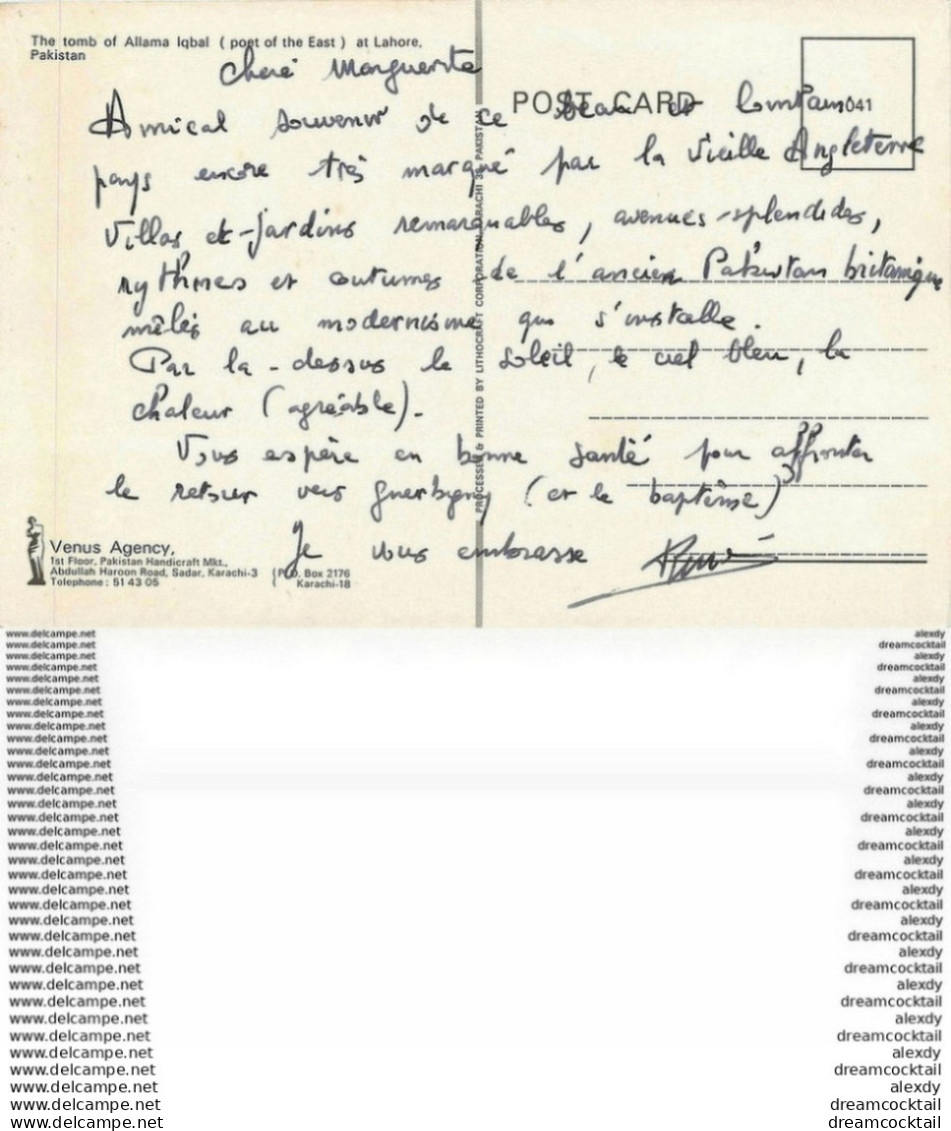 The tomb of Allama Iqbal ( poet of the East ) at Lahore,
Pakistan
POST CARD
041
Chère Marguerite
Amical souvenir de ce beau et lointain
pays encore très marqué par la vieille Angleterre
Villas et jardins remarquables, avenues splendides,
rythmes et coutumes de l'ancien Pakistan britannique
mêlés au modernisme qui s'installe.
Par là-dessus le soleil, le ciel bleu, la
chaleur (agréable).
Vous espère en bonne santé pour affronter
le retour vers Guerbigny (et le baptême)
Je vous embrasse
PROCESSED & PRINTED BY LITHOCRAFT CORPORATION, KARACHI 35, PAKISTAN
Venus Agency,
1st Floor, Pakistan Handicraft Mkt.,
Abdullah Haroon Road, Sadar, Karachi-3 (P.O. Box 2176
Telephone : 51 43 05 Karachi-18
www.delcampe.net alexdy
www.delcampe.net dreamcocktail
www.delcampe.net alexdy
www.delcampe.net dreamcocktail
www.delcampe.net alexdy
www.delcampe.net dreamcocktail
www.delcampe.net alexdy
www.delcampe.net dreamcocktail
www.delcampe.net alexdy
www.delcampe.net dreamcocktail
www.delcampe.net alexdy
www.delcampe.net dreamcocktail
www.delcampe.net alexdy
www.delcampe.net dreamcocktail
www.delcampe.net alexdy
www.delcampe.net dreamcocktail
www.delcampe.net alexdy
www.delcampe.net dreamcocktail
www.delcampe.net alexdy
www.delcampe.net dreamcocktail
www.delcampe.net alexdy
www.delcampe.net dreamcocktail
www.delcampe.net alexdy
www.delcampe.net dreamcocktail
www.delcampe.net alexdy
www.delcampe.net dreamcocktail
www.delcampe.net alexdy
www.delcampe.net dreamcocktail
www.delcampe.net alexdy
www.delcampe.net dreamcocktail
www.delcampe.net alexdy
www.delcampe.net dreamcocktail
www.delcampe.net alexdy
www.delcampe.net dreamcocktail
www.delcampe.net alexdy
www.delcampe.net dreamcocktail
www.delcampe.net dreamcocktail